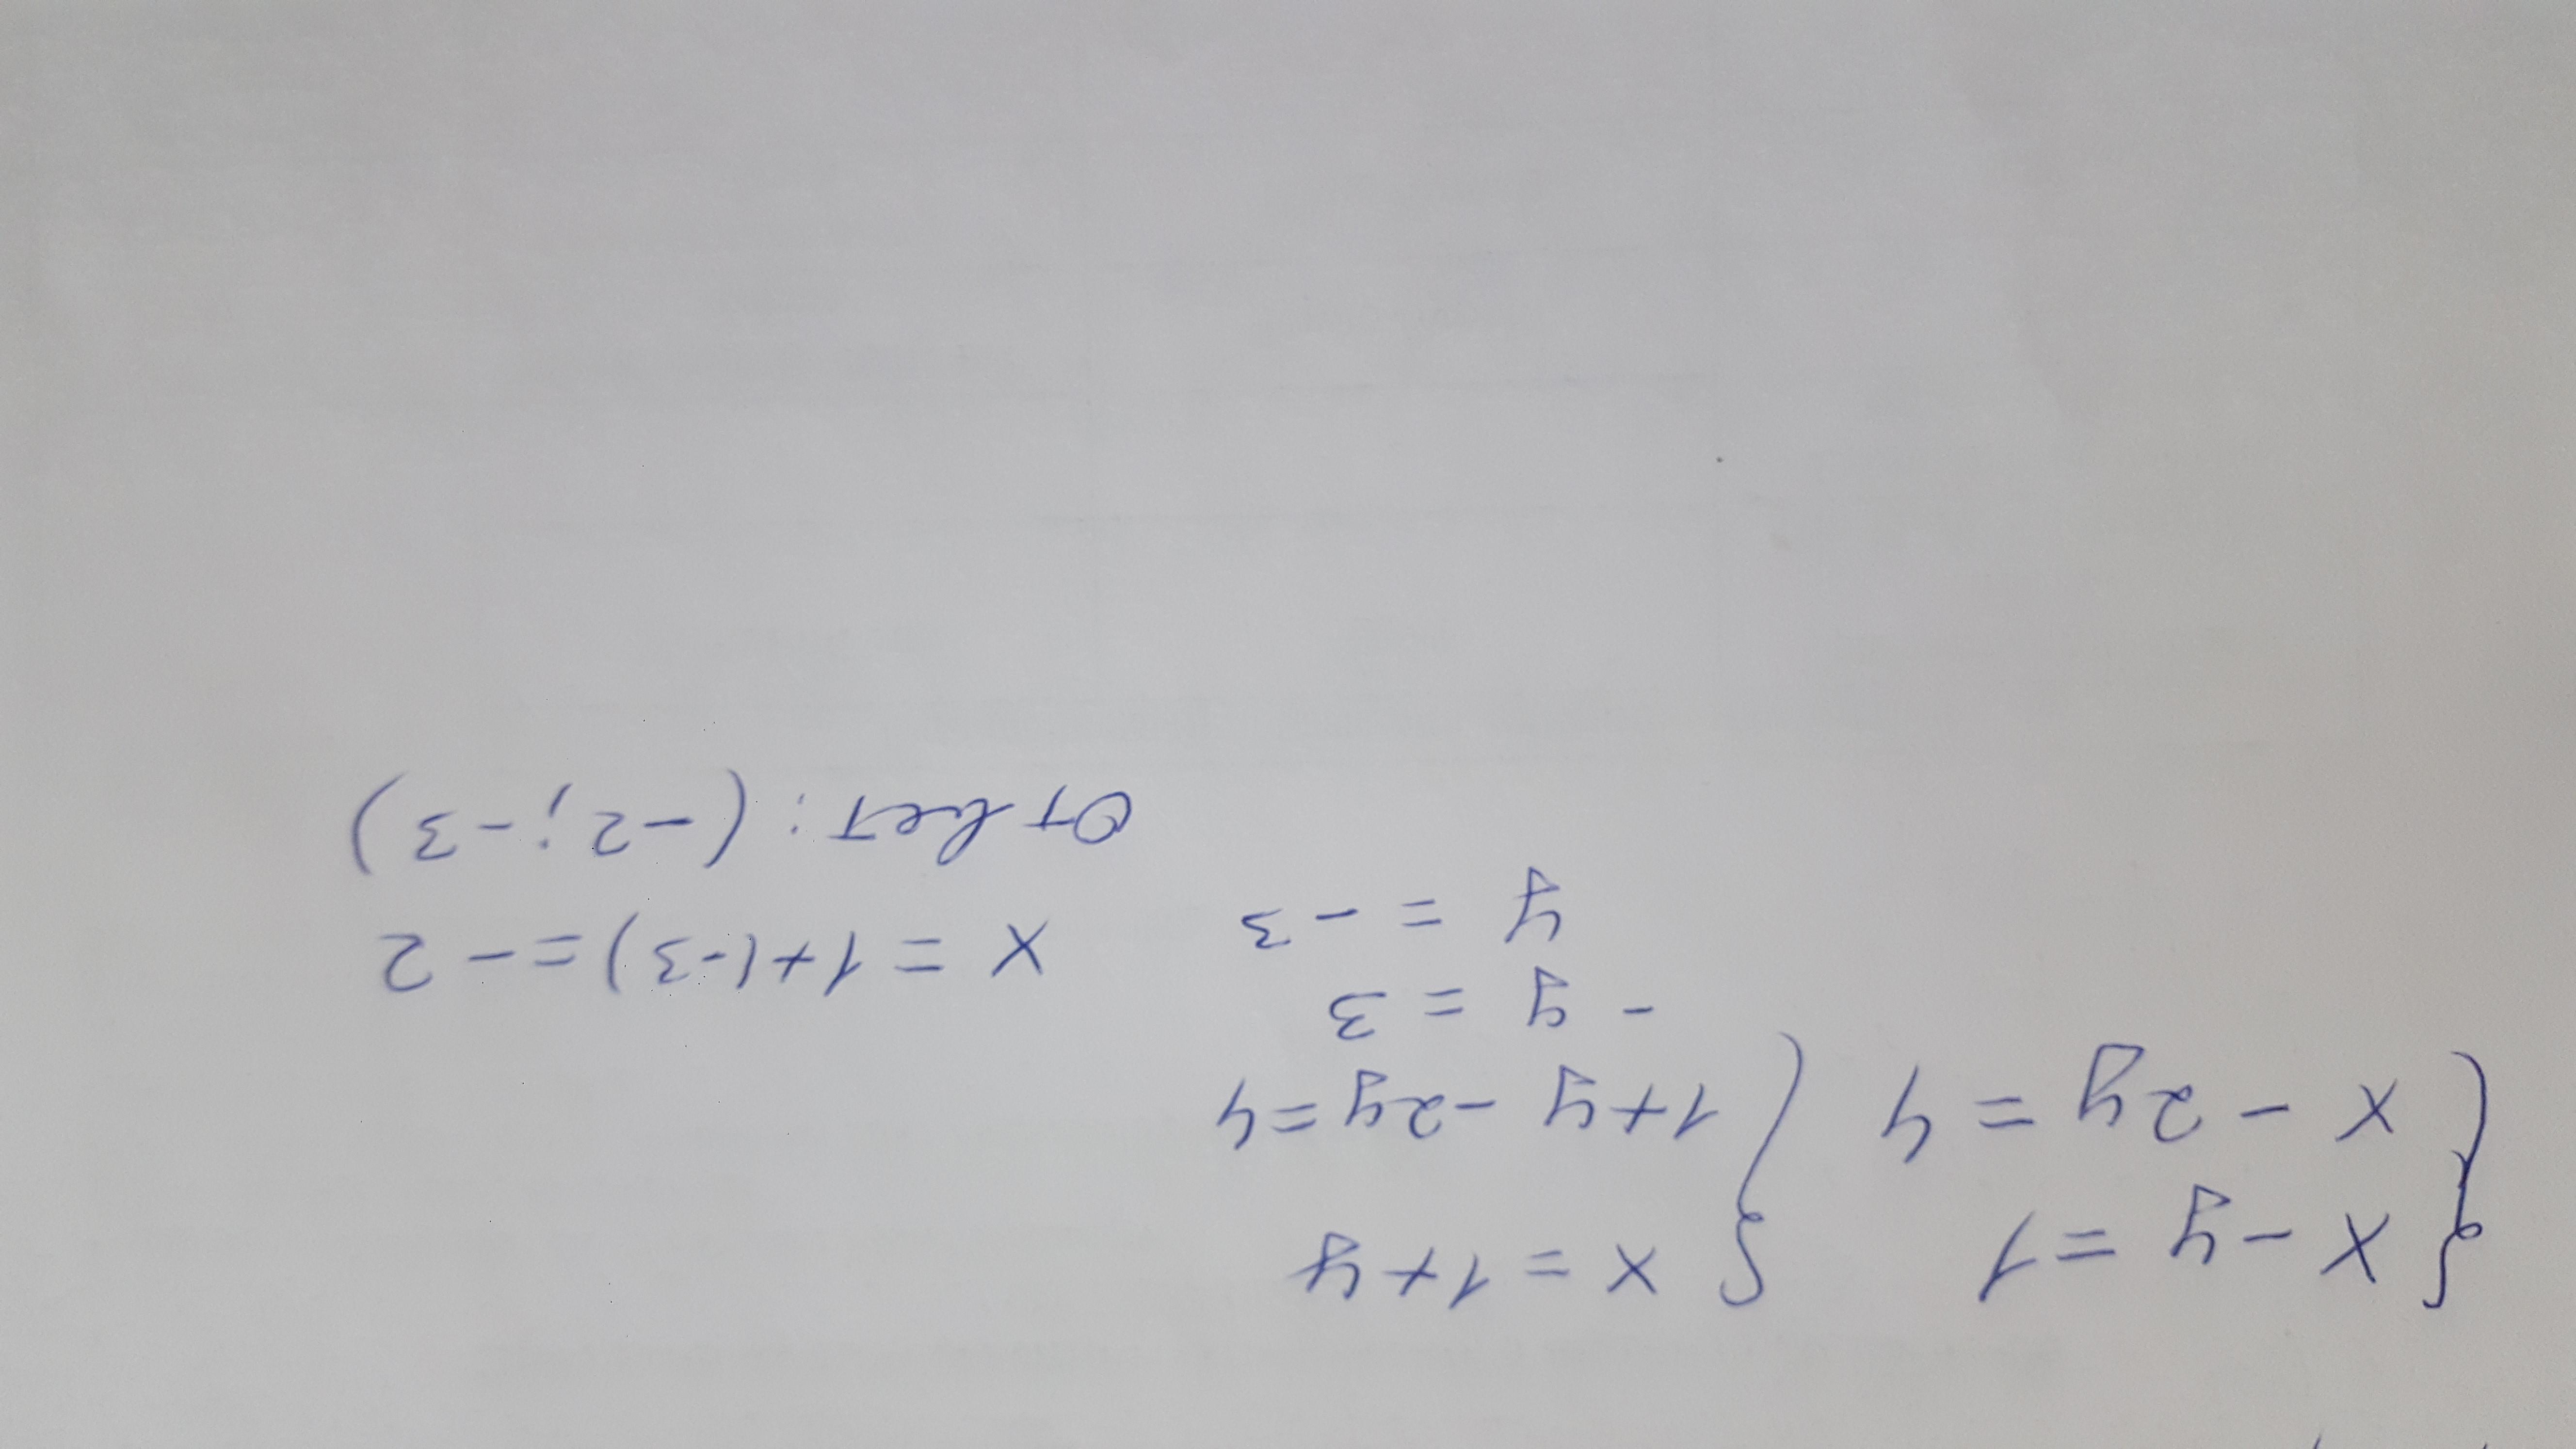 { x - y = 1
x - 2y = 4
{ x = 1 + y
1 + y - 2y = 4
- y = 3
y = - 3
x = 1 + (-3) = - 2
Ответ: (-2; -3)